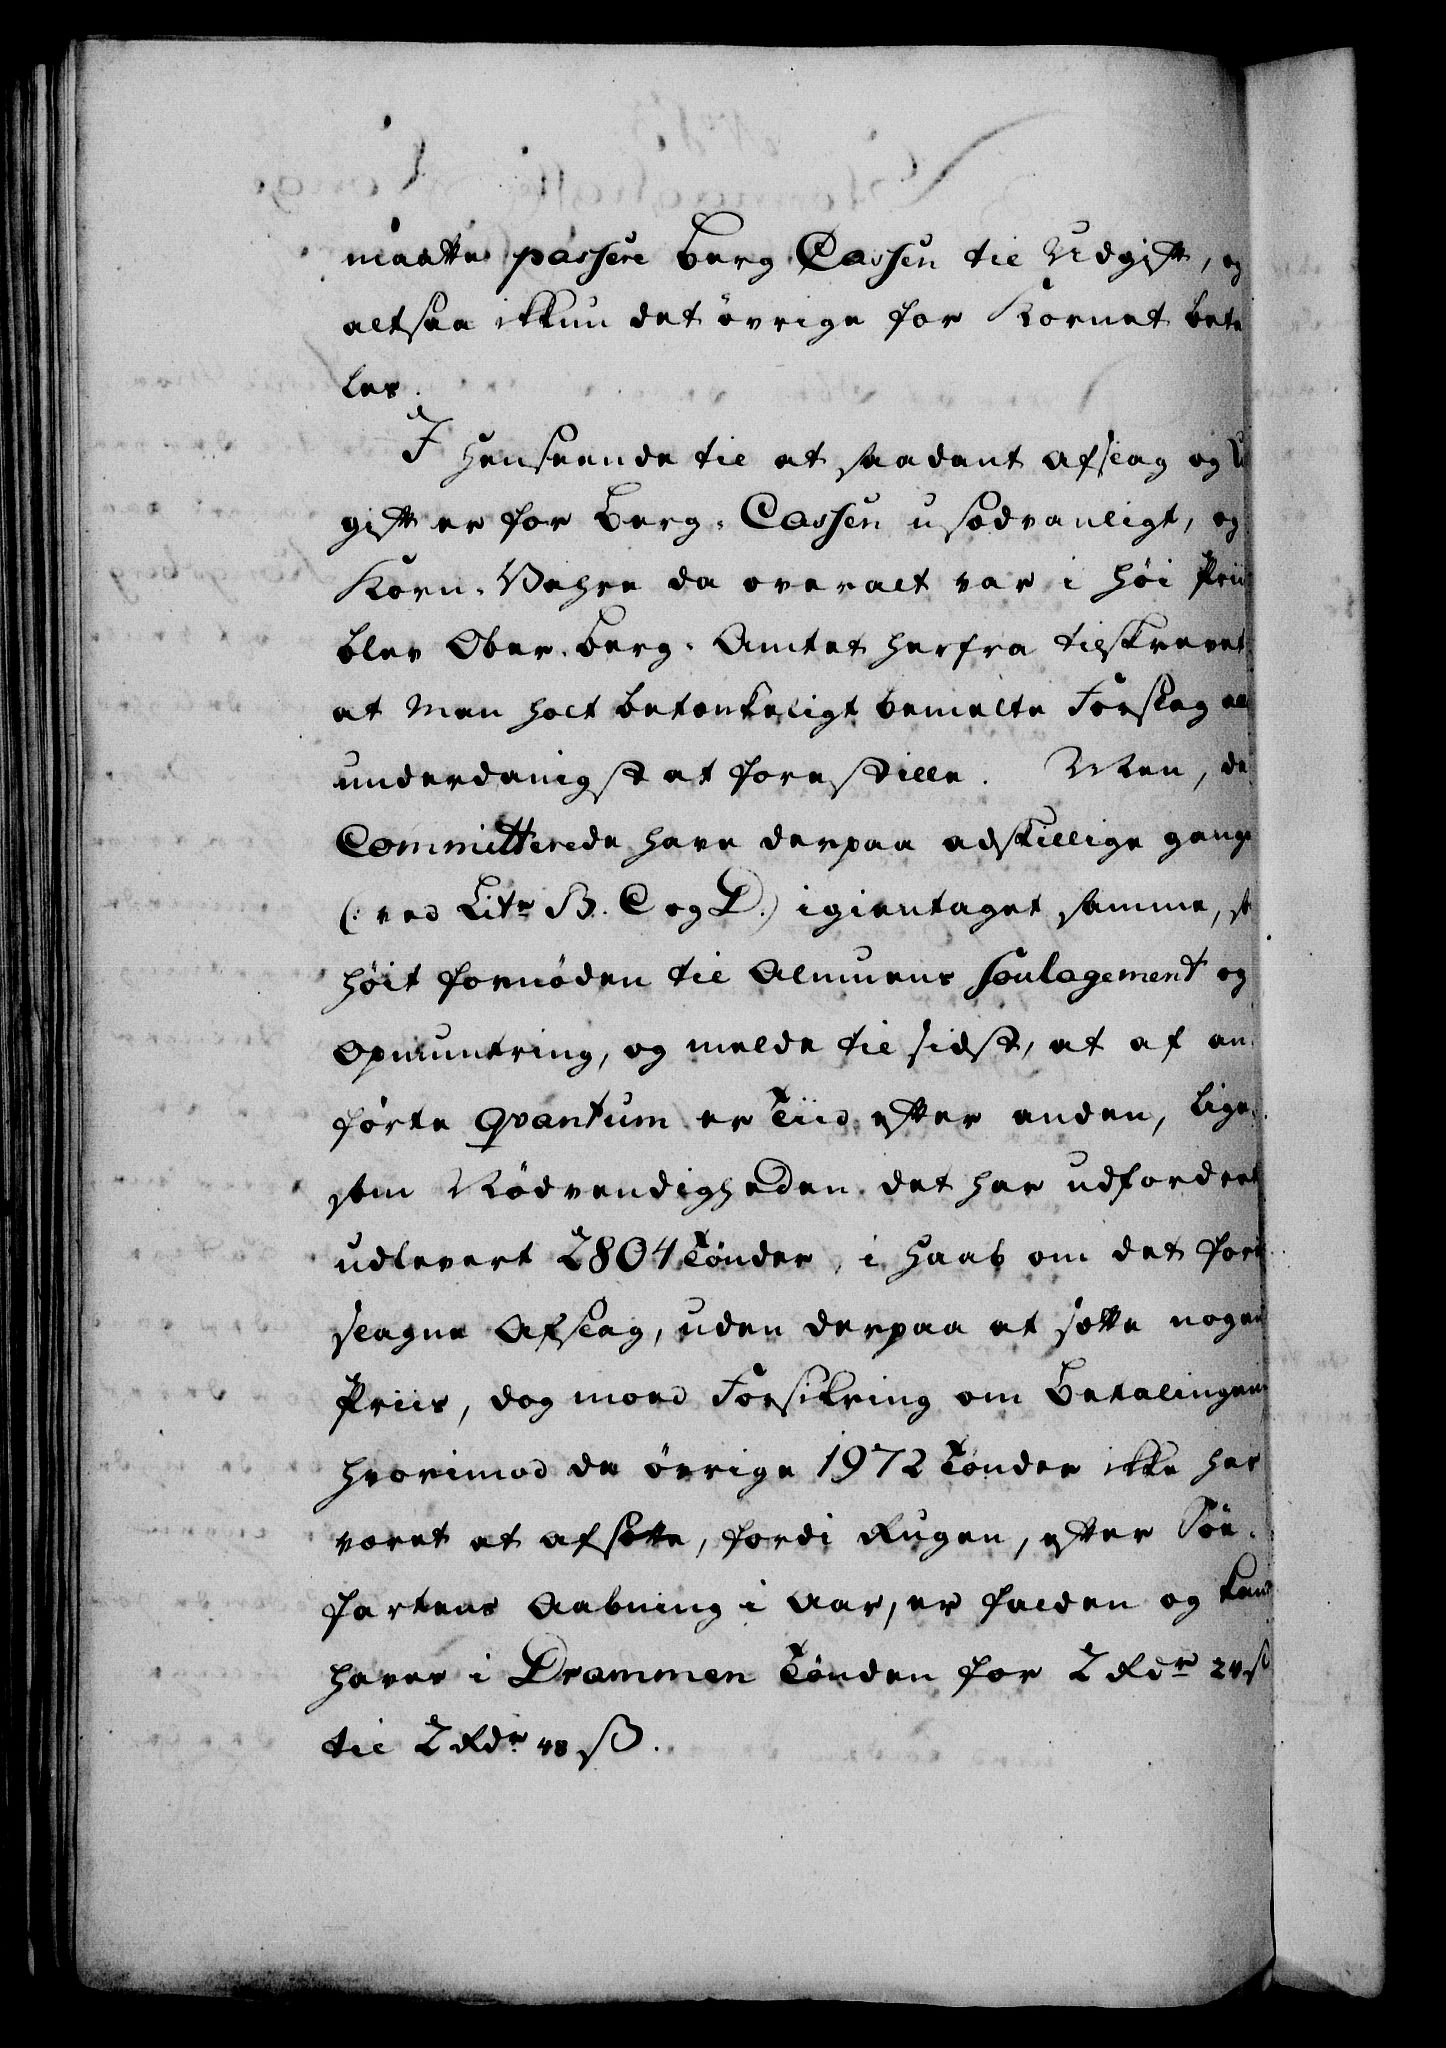 maatte passere Berg Cassen til Udgift, og
altsaa ikkun det övrige for Kornet beta
les.
I Henseende til at saadant Afslag og U
gift er for Berg-Cassen usædvanligt, og
Korn-Vahre da overalt var i höi Priis
blev Ober-Berg-Amtet herfra tilskrevet
at Man holt betænkeligt bemelte Forslag all
underdanigst at forestille. Men, de
Committerede have derpaa adskillige gange
(: ved Litr B. C og D.) igientaget samme, so
höit fornöden til Almuens Soulagement og
Opmuntring, og melde til sidst, at af an-
förte Qvantum er Tiid efter anden, lige-
som Nödvendigheden det har udfordret
udlevert 2804 Tönder, i Haab om det fore
slagne Afslag, uden derpaa at sætte nogen
Priis, dog mod Forsikring om Betalingen
hvorimod de övrige 1972 Tönder ikke har
været at afsætte, fordi Rugen, efter Söe-
fartens Aabning i Aar, er falden og kand
haves i Drammen Tönden for 2 Rdr 24 ß
til 2 Rdr 48 ß.